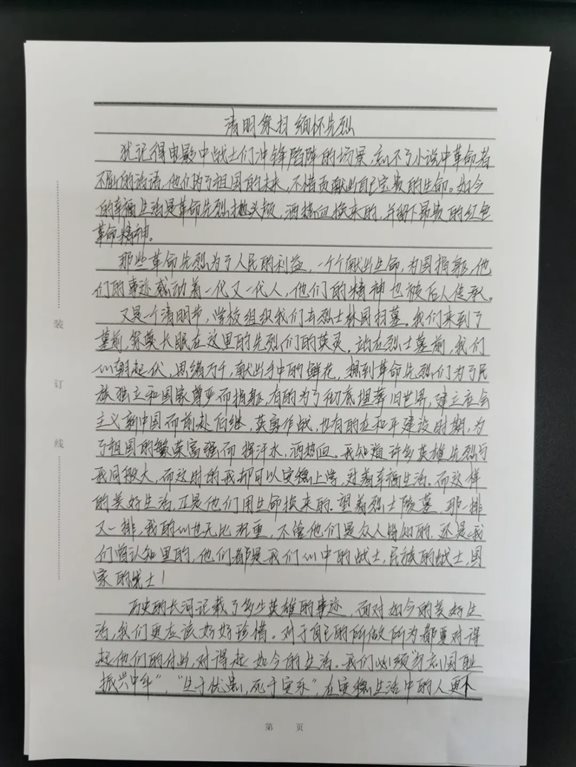 清明祭扫 缅怀先烈
犹记得电影中战士们冲锋陷阵的场景，忘不了小说中革命者
不屈的话语，他们为了祖国的未来，不惜贡献出自己宝贵的生命。如今
的幸福生活是革命先烈抛头颅，洒热血换来的，并留下最贵的红色
革命精神。
那些革命先烈为了人民的利益，一个个献出生命，为国捐躯，他
们的事迹感动着一代又一代人，他们的精神也被后人传承。
又是一个清明节，学校组织我们去烈士林园扫墓，我们来到了
墓前，祭奠长眠在这里的先烈们的英灵，站在烈士墓前，我们
心潮起伏，思绪万千，献出手中的鲜花，想到革命先烈们为了民
族独立和国家尊严而捐躯，有的为了彻底埋葬旧世界，建立社会
主义新中国而前赴后继，英勇作战，也有的在和平建设时期，为
了祖国的繁荣富强而挥汗水，洒热血。我知道许多英雄先烈与
我同般大，而这时的我却可以安稳上学，过着幸福生活。而这样
的美好生活正是他们用生命换来的。望着烈士陵墓，那一排
又一排，我的心也无比沉重，不管他们是众人得知的，还是我
们所认知里的，他们都是我们心中的战士，民族的战士，国
家的战士！
历史的长河记载了多少英雄的事迹，面对如今的美好生
活，我们更应该好好珍惜。对于自己的所做所为都要对得
起他们的付出，对得起如今的生活。我们必须“勿忘国耻，
振兴中华”，“生于忧患，死于安乐”，在安稳生活中的人更不
装
订
线
第 页